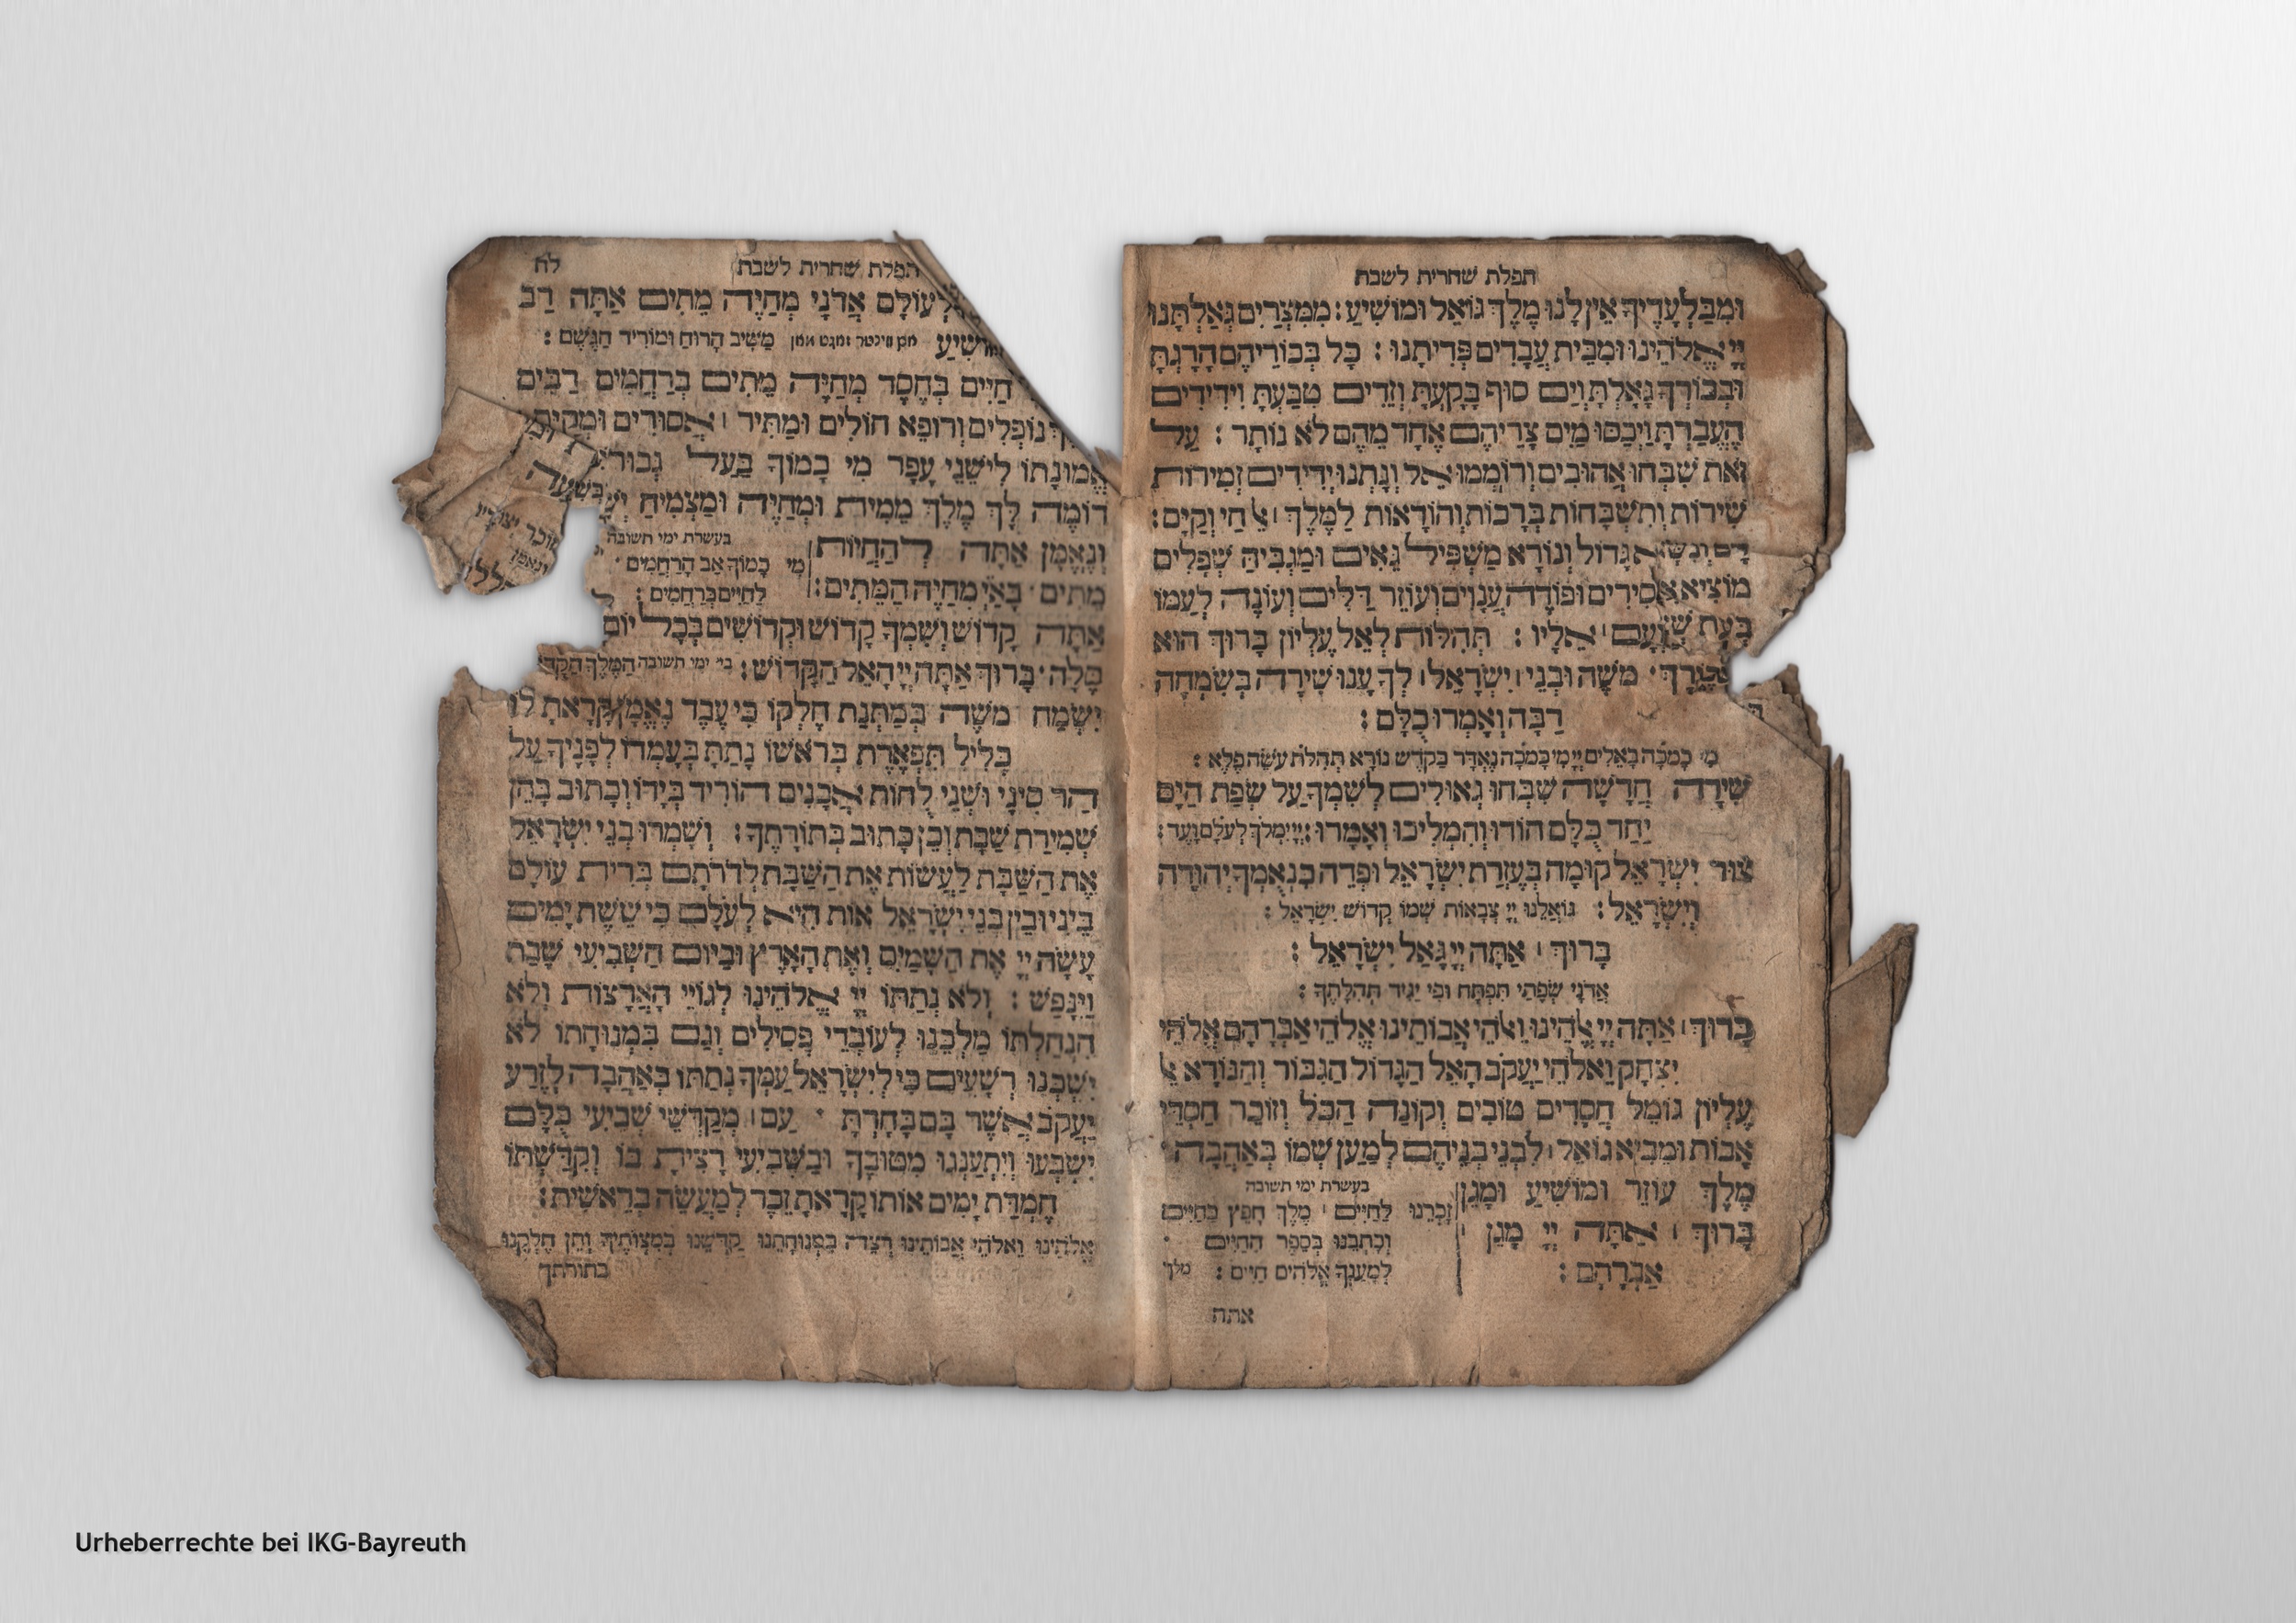 תפלת שחרית לשבת
וּמִבַּלְעָדֶיךָ אֵין לָנוּ מֶלֶךְ גּוֹאֵל וּמוֹשִׁיעַ: מִמִּצְרַיִם גְּאַלְתָּנוּ
יְיָ אֱלֹהֵינוּ וּמִבֵּית עֲבָדִים פְּדִיתָנוּ: כָּל בְּכוֹרֵיהֶם הָרָגְתָּ
וּבְכוֹרְךָ גָּאָלְתָּ וְיַם סוּף בָּקַעְתָּ וְזֵדִים טִבַּעְתָּ וִידִידִים
הֶעֱבַרְתָּ וַיְכַסּוּ מַיִם צָרֵיהֶם אֶחָד מֵהֶם לֹא נוֹתָר: עַל
זֹאת שִׁבְּחוּ אֲהוּבִים וְרוֹמְמוּ אֵל וְנָתְנוּ יְדִידִים זְמִירוֹת
שִׁירוֹת וְתִשְׁבָּחוֹת בְּרָכוֹת וְהוֹדָאוֹת לַמֶּלֶךְ אֵל חַי וְקַיָּם:
רָם וְנִשָּׂא גָּדוֹל וְנוֹרָא מַשְׁפִּיל גֵּאִים וּמַגְבִּיהַּ שְׁפָלִים
מוֹצִיא אֲסִירִים וּפוֹדֶה עֲנָוִים וְעוֹזֵר דַּלִּים וְעוֹנֶה לְעַמּוֹ
בְּעֵת שַׁוְּעָם אֵלָיו: תְּהִלּוֹת לְאֵל עֶלְיוֹן בָּרוּךְ הוּא
מֹשֶׁה וּבְנֵי יִשְׂרָאֵל לְךָ עָנוּ שִׁירָה בְּשִׂמְחָה
רַבָּה וְאָמְרוּ כֻלָּם:
מִי כָמֹכָה בָּאֵלִים יְיָ מִי כָּמֹכָה נֶאְדָּר בַּקֹּדֶשׁ נוֹרָא תְהִלֹּת עֹשֵׂה פֶלֶא:
שִׁירָה חֲדָשָׁה שִׁבְּחוּ גְאוּלִים לְשִׁמְךָ עַל שְׂפַת הַיָּם
יַחַד כֻּלָּם הוֹדוּ וְהִמְלִיכוּ וְאָמְרוּ: יְיָ יִמְלֹךְ לְעֹלָם וָעֶד:
צוּר יִשְׂרָאֵל קוּמָה בְּעֶזְרַת יִשְׂרָאֵל וּפְדֵה כִנְאֻמְךָ יְהוּדָה
וְיִשְׂרָאֵל: גּוֹאֲלֵנוּ יְיָ צְבָאוֹת שְׁמוֹ קְדוֹשׁ יִשְׂרָאֵל:
בָּרוּךְ אַתָּה יְיָ גָּאַל יִשְׂרָאֵל:
אֲדֹנָי שְׂפָתַי תִּפְתָּח וּפִי יַגִּיד תְּהִלָּתֶךָ:
בָּרוּךְ אַתָּה יְיָ אֱלֹהֵינוּ וֵאלֹהֵי אֲבוֹתֵינוּ אֱלֹהֵי אַבְרָהָם אֱלֹהֵי
יִצְחָק וֵאלֹהֵי יַעֲקֹב הָאֵל הַגָּדוֹל הַגִּבּוֹר וְהַנּוֹרָא אֵל
עֶלְיוֹן גּוֹמֵל חֲסָדִים טוֹבִים וְקוֹנֵה הַכֹּל וְזוֹכֵר חַסְדֵּי
אָבוֹת וּמֵבִיא גוֹאֵל לִבְנֵי בְנֵיהֶם לְמַעַן שְׁמוֹ בְּאַהֲבָה
בעשרת ימי תשובה
מֶלֶךְ עוֹזֵר וּמוֹשִׁיעַ וּמָגֵן
זָכְרֵנוּ לַחַיִּים מֶלֶךְ חָפֵץ בַּחַיִּים
בָּרוּךְ אַתָּה יְיָ מָגֵן
וְכָתְבֵנוּ בְּסֵפֶר הַחַיִּים
אַבְרָהָם:
לְמַעַנְךָ אֱלֹהִים חַיִּים: מלך
אתה
תפלת שחרית לשבת לח
לְעוֹלָם אֲדֹנָי מְחַיֵּה מֵתִים אַתָּה רַב
מַשִּׁיב הָרוּחַ וּמוֹרִיד הַגֶּשֶׁם:
חַיִּים בְּחֶסֶד מְחַיֵּה מֵתִים בְּרַחֲמִים רַבִּים
נוֹפְלִים וְרוֹפֵא חוֹלִים וּמַתִּיר אֲסוּרִים וּמְקַיֵּם
אֱמוּנָתוֹ לִישֵׁנֵי עָפָר מִי כָמוֹךָ בַּעַל גְּבוּרוֹת
דוֹמֶה לָּךְ מֶלֶךְ מֵמִית וּמְחַיֶּה וּמַצְמִיחַ
בעשרת ימי תשובה
וְנֶאֱמָן אַתָּה לְהַחֲיוֹת
מִי כָמוֹךָ אַב הָרַחֲמִים
מֵתִים בָּאַ״יְ מְחַיֵּה הַמֵּתִים:
לְחַיִּים בְּרַחֲמִים:
אַתָּה קָדוֹשׁ וְשִׁמְךָ קָדוֹשׁ וּקְדוֹשִׁים בְּכָל יוֹם
סֶלָה בָּרוּךְ אַתָּה יְיָ הָאֵל הַקָּדוֹשׁ: בי׳ ימי תשובה הַמֶּלֶךְ
יִשְׂמַח מֹשֶׁה בְּמַתְּנַת חָלְקוֹ כִּי עֶבֶד נֶאֱמָן קָרָאתָ לּוֹ
כְּלִיל תִּפְאֶרֶת בְּרֹאשׁוֹ נָתַתָּ בְּעָמְדוֹ לְפָנֶיךָ עַל
הַר סִינַי וּשְׁנֵי לֻחוֹת אֲבָנִים הוֹרִיד בְּיָדוֹ וְכָתוּב בָּהֶן
שְׁמִירַת שַׁבָּת וְכֵן כָּתוּב בְּתוֹרָתֶךָ: וְשָׁמְרוּ בְנֵי יִשְׂרָאֵל
אֶת הַשַּׁבָּת לַעֲשׂוֹת אֶת הַשַּׁבָּת לְדֹרֹתָם בְּרִית עוֹלָם
בֵּינִי וּבֵין בְּנֵי יִשְׂרָאֵל אוֹת הִיא לְעֹלָם כִּי שֵׁשֶׁת יָמִים
עָשָׂה יְיָ אֶת הַשָּׁמַיִם וְאֶת הָאָרֶץ וּבַיּוֹם הַשְּׁבִיעִי שָׁבַת
וַיִּנָּפַשׁ: וְלֹא נְתַתּוֹ יְיָ אֱלֹהֵינוּ לְגוֹיֵי הָאֲרָצוֹת וְלֹא
הִנְחַלְתּוֹ מַלְכֵּנוּ לְעוֹבְדֵי פְסִילִים וְגַם בִּמְנוּחָתוֹ לֹא
יִשְׁכְּנוּ רְשָׁעִים כִּי לְיִשְׂרָאֵל עַמְּךָ נְתַתּוֹ בְּאַהֲבָה לְזֶרַע
יַעֲקֹב אֲשֶׁר בָּם בָּחָרְתָּ עַם מְקַדְּשֵׁי שְׁבִיעִי כֻּלָּם
יִשְׂבְּעוּ וְיִתְעַנְּגוּ מִטּוּבֶךָ וּבַשְּׁבִיעִי רָצִיתָ בּוֹ וְקִדַּשְׁתּוֹ
חֶמְדַּת יָמִים אוֹתוֹ קָרָאתָ זֵכֶר לְמַעֲשֵׂה בְרֵאשִׁית:
אֱלֹהֵינוּ וֵאלֹהֵי אֲבוֹתֵינוּ רְצֵה בִמְנוּחָתֵנוּ קַדְּשֵׁנוּ בְּמִצְוֹתֶיךָ וְתֵן חֶלְקֵנוּ
בתורתך
Urheberrechte bei IKG-Bayreuth